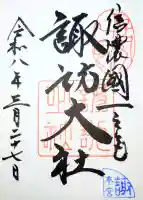 信濃國一之宮
諏訪大社
令和八年三月二十七日
本宮